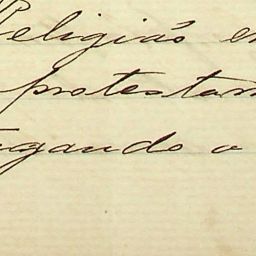 Religião e
protestan
gando o